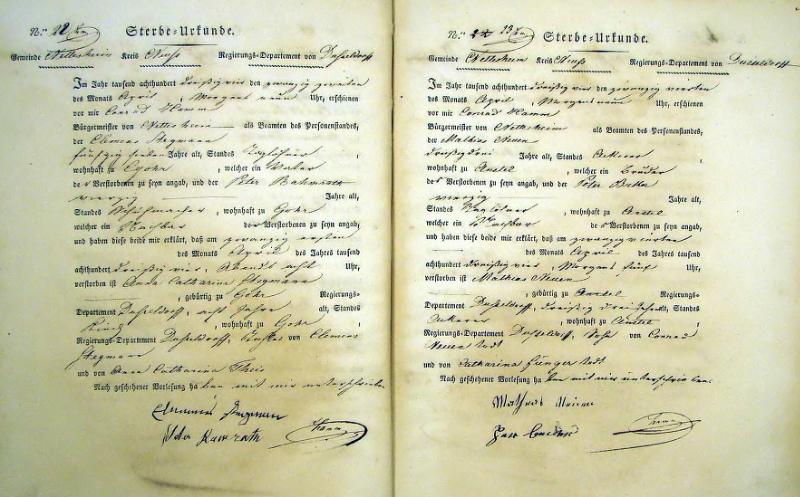 No. 22
Sterbe=Urkunde.
Gemeinde Nettesheim Kreis Neuß Regierungs-Departement von Dusseldorff
Im Jahr tausend achthundert dreißig vier den zwanzig zweiten
des Monats April, Morgens neun Uhr, erschienen
vor mir Conrad Hamm
Bürgermeister von Nettesheim als Beamten des Personenstandes,
der Clemens Stegmann
fünfzig sieben Jahre alt, Standes Taglöhner,
wohnhaft zu Gohr, welcher ein Vater
der Verstorbenen zu seyn angab, und der Peter
vierzig Jahre alt,
Standes Schuhmacher, wohnhaft zu Gohr
welcher ein Nachbar der Verstorbenen zu seyn angab,
und haben diese beide mir erklärt, daß am zwanzig ersten
des Monats April des Jahres tausend
achthundert dreißig vier, Abends acht Uhr,
verstorben ist Anna Catharina Stegmann
, gebürtig zu Gohr Regierungs-
Departement Dusseldorff, acht Jahre alt, Standes
Kind, wohnhaft zu Gohr,
Regierungs-Departement Dusseldorff, Tochter von Clemens
Stegmann
und von Anna Catharina Theis
Nach geschehener Vorlesung haben mit mir unterschrieben
Hamm
No. 23
Sterbe=Urkunde.
Gemeinde Nettesheim Kreis Neuß Regierungs-Departement von Dusseldorff
Im Jahr tausend achthundert dreißig vier den zwanzig vierten
des Monats April, Morgens neun Uhr, erschienen
vor mir Conrad Hamm
Bürgermeister von Nettesheim als Beamten des Personenstandes,
der Mathias Neuen
dreißig drei Jahre alt, Standes Ackerer,
wohnhaft zu Anstel, welcher ein Bruder
des Verstorbenen zu seyn angab, und der Peter
vierzig Jahre alt,
Standes Taglöhner, wohnhaft zu Anstel
welcher ein Nachbar des Verstorbenen zu seyn angab,
und haben diese beide mir erklärt, daß am zwanzig vierten
des Monats April des Jahres tausend
achthundert dreißig vier, Morgens fünf Uhr,
verstorben ist Mathias Neuen
, gebürtig zu Anstel Regierungs-
Departement Dusseldorff, dreißig drei Jahre alt, Standes
Ackerer, wohnhaft zu Anstel,
Regierungs-Departement Dusseldorff, Sohn von Conrad
Neuen todt
und von Catharina todt
Nach geschehener Vorlesung haben mit mir unterschrieben.
Mathias Neuen
Hamm